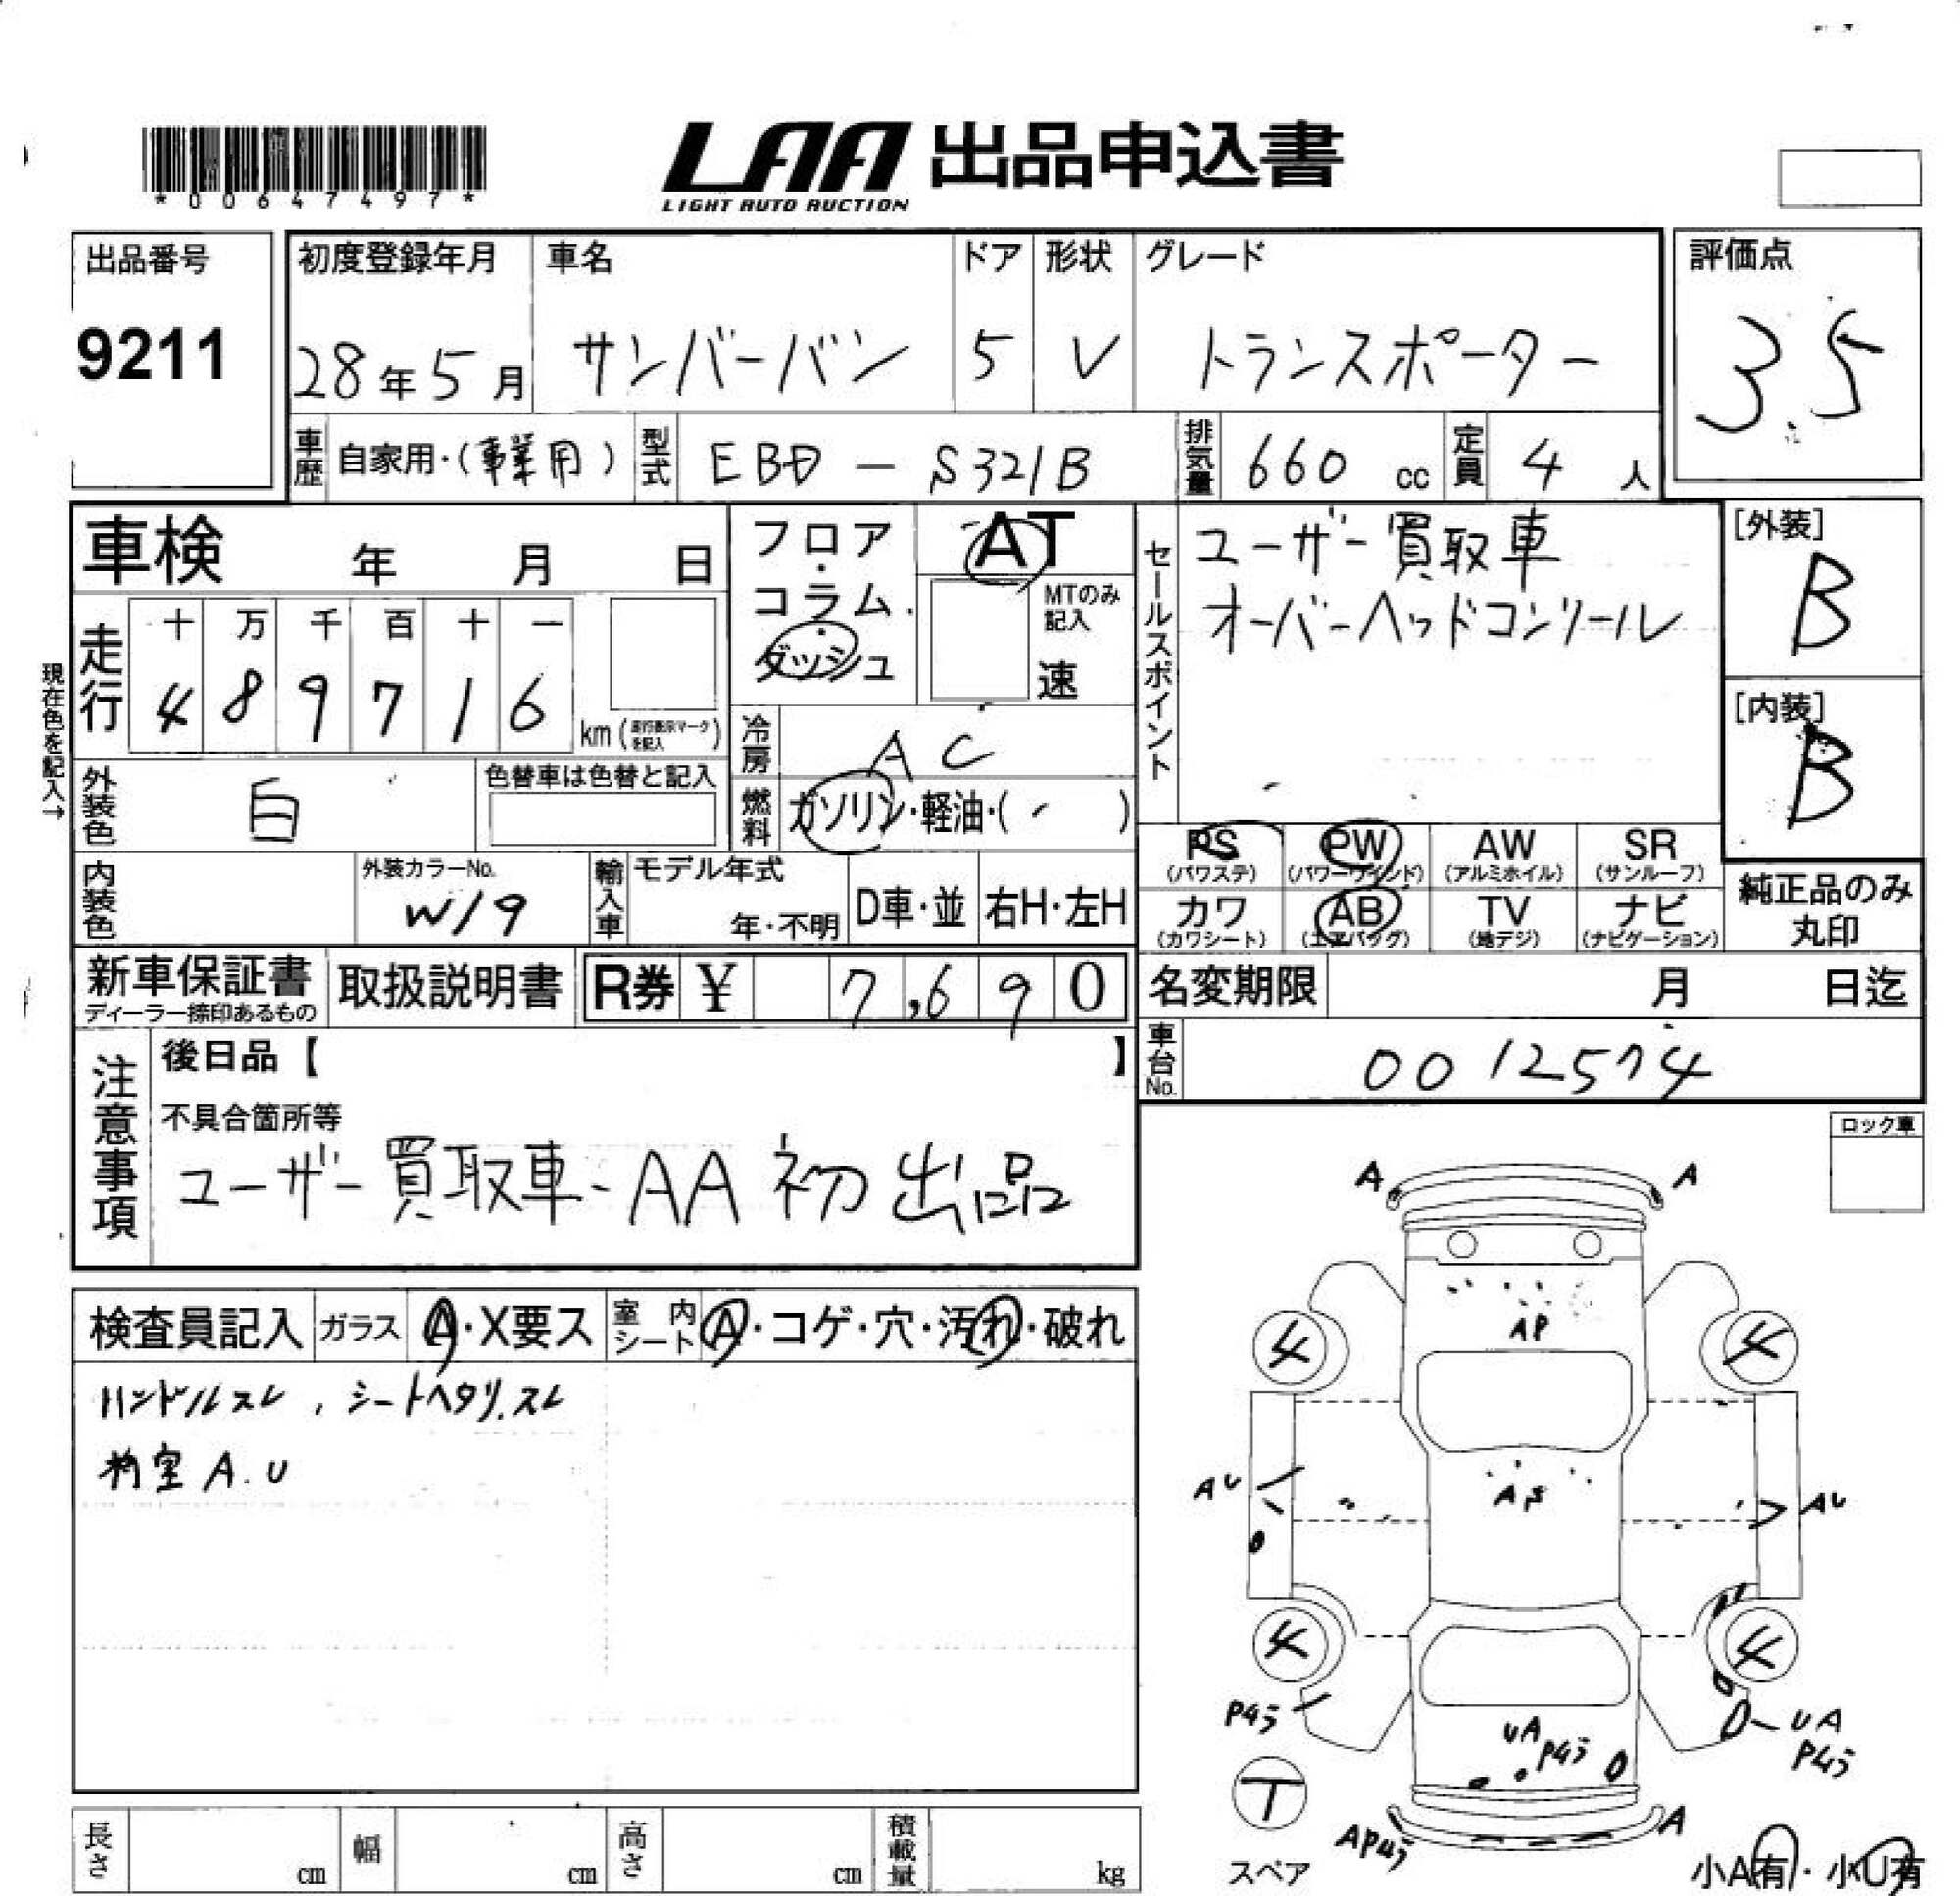 *00647497*
LAA 出品申込書
LIGHT AUTO AUCTION
出品番号
9211
初度登録年月
28年5月
車名
サンバーバン
ドア
5
形状
V
グレード
トランスポーター
評価点
3.5
車歴 自家用・(事業用)
型式 EBD-S321B
排気量 660 cc
定員 4 人
車検 年 月 日
フロア・コラム・ダッシュ
AT
MTのみ記入
速
セールスポイント
ユーザー買取車
オーバーヘッドコンソール
[外装]
B
[内装]
B
現在色を記入→
走行
十 万 千 百 十 一
4 8 9 7 1 6
km (走行表示マークを記入)
冷房 AC
外装色 白
色替車は色替と記入
燃料 ガソリン・軽油・( )
PS (パワステ)
PW (パワーウインド)
AW (アルミホイル)
SR (サンルーフ)
カワ (カワシート)
AB (エアバッグ)
TV (地デジ)
ナビ (ナビゲーション)
純正品のみ
丸印
内装色
外装カラーNo.
W19
輸入車
モデル年式
年・不明
D車・並
右H・左H
新車保証書
ディーラー捺印あるもの
取扱説明書
R券 ¥ 7,690
名変期限 月 日迄
車台No. 0012574
注意事項
後日品【 】
不具合箇所等
ユーザー買取車、AA初出品
ロック車
検査員記入
ガラス A・X要ス
室内シート A・コゲ・穴・汚れ・破れ
ハンドルスレ、シートヘタリ.スレ
荷室 A.U
A A
4 4
AP
AU AU
4 4
UA
T
スペア
A
小A有・小U有
長さ cm
幅 cm
高さ cm
積載量 kg